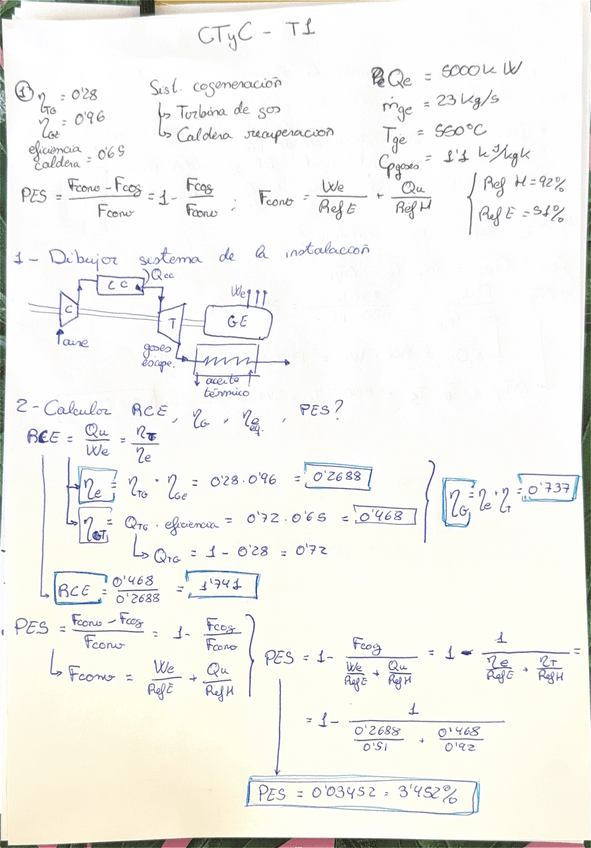 CTyC - T1
① η_TG = 0'28
η_GE = 0'96
eficiencia caldera = 0'65
Sist. cogeneración
↳ Turbina de gas
↳ Caldera recuperacion
Qe = 5000 kW
ṁge = 23 kg/s
Tge = 560°C
Cp gases = 1'1 kJ/kgK
PES = (Fconv - Fcog)/Fconv = 1 - Fcog/Fconv ; Fconv = We/RefE + Qu/RefH
Ref H = 92%
Ref E = 51%
1 - Dibujar sistema de la instalación
Qcc
CC
We
C
T
GE
aire
gases escape.
aceite térmico
2 - Calcular RCE, η_G, η_e eq., PES?
RCE = Qu/We = η_T/η_e
η_e = η_TG · η_GE = 0'28 · 0'96 = 0'2688
η_T = Q_TG · eficiencia = 0'72 · 0'65 = 0'468
↳ Q_TG = 1 - 0'28 = 0'72
η_G = η_e + η_T = 0'737
RCE = 0'468/0'2688 = 1'741
PES = (Fconv - Fcog)/Fconv = 1 - Fcog/Fconv
↳ Fconv = We/RefE + Qu/RefH
PES = 1 - Fcog/(We/RefE + Qu/RefH) = 1 - 1/(η_e/RefE + η_T/RefH) =
= 1 - 1/(0'2688/0'51 + 0'468/0'92)
PES = 0'03452 = 3'452%